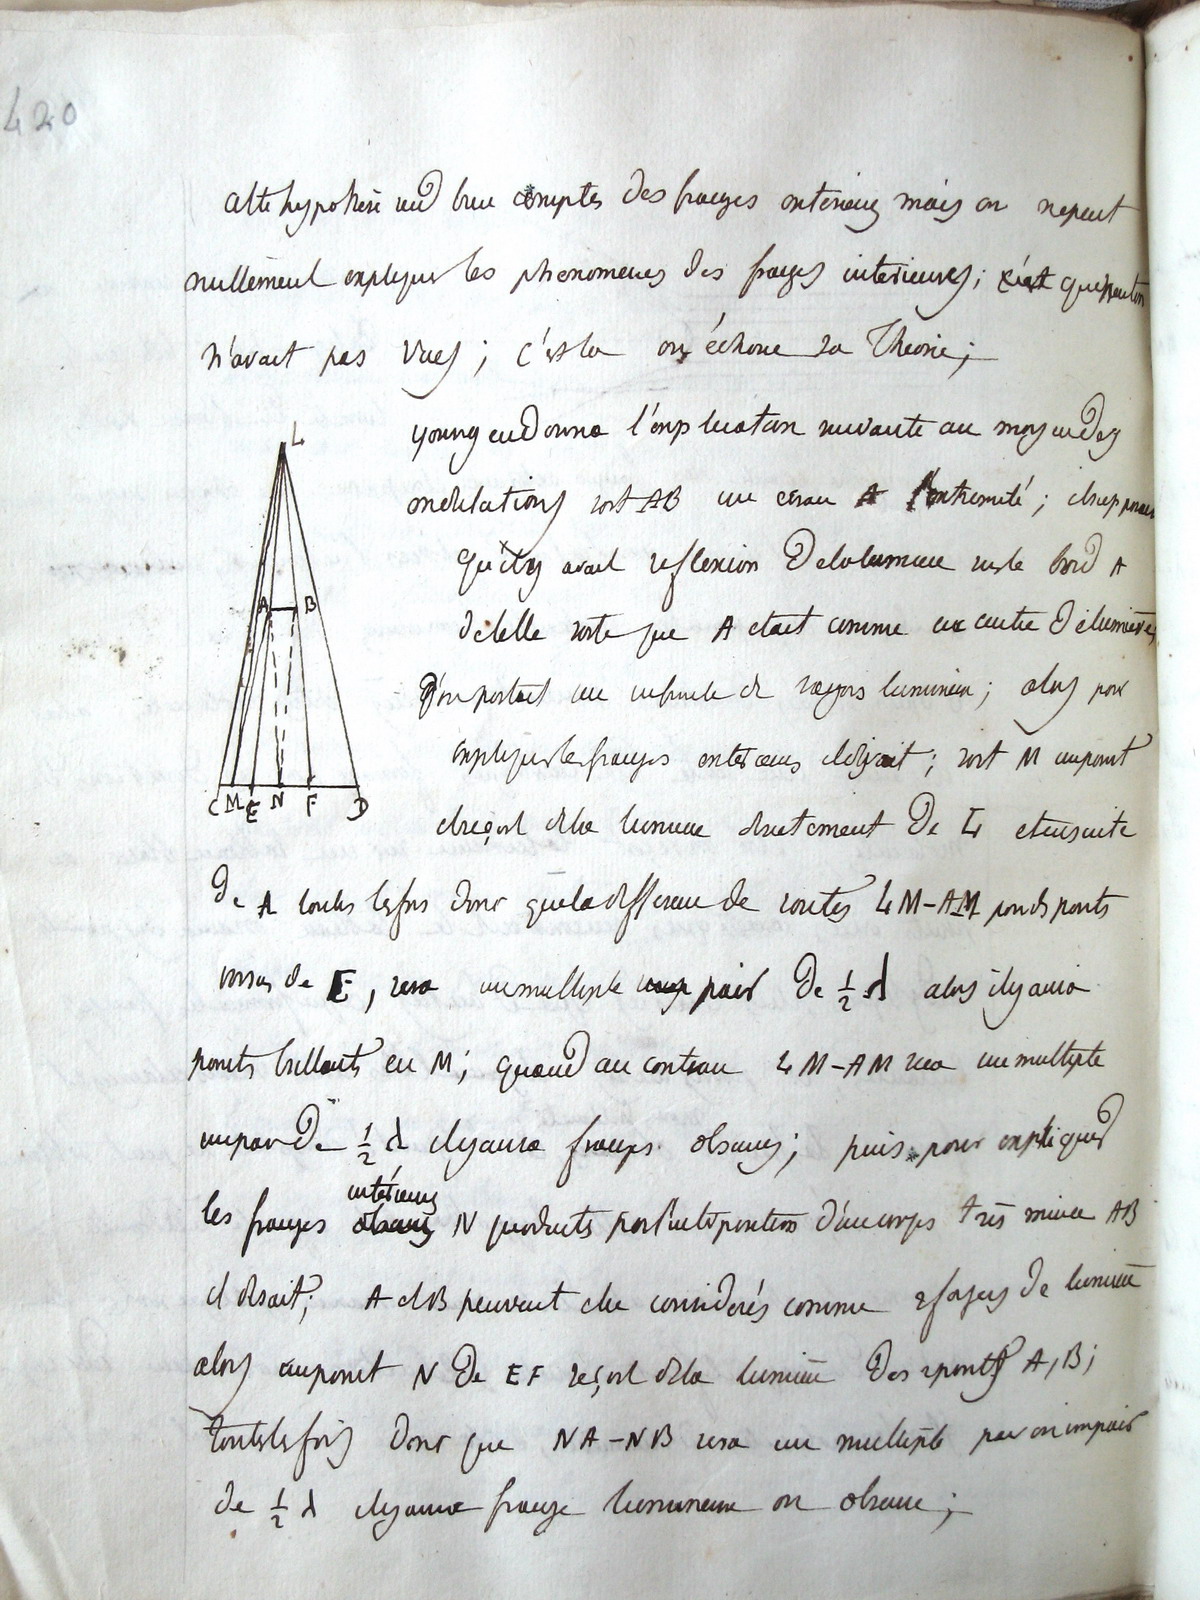 420
cette hypothèse rend bien comptes des franges exterieurs mais on nepeut
nullement expliquer les phénomenes des franges interieures; que neuton
n'avait pas vues; c'est la ou échoue sa Théorie;
young en donna l'explication suivante au moyen des
ondulations soit AB un ecran A l'extremité; il supposait
qu'il y avait reflexion de la lumiere sur le bord A
de telle sorte que A etait comme un centre de lumières
d'ou partait une infinité de rayons lumineux; alors pour
expliquer les franges exterieurs il disait; soit M un point
il reçoit de la lumiere directement de L et ensuite
de A toutes les fois donc que la difference de routes LM-AM
de E, sera un multiple pair de 1/2 λ alors il y aura
points brillants en M; quand au contraire LM-AM sera un multiple
impair de 1/2 λ il y aura franges obscures; puis pour expliquer
intérieurs
les franges N produits par l'interposition d'un corps très mince AB
il disait; A et B peuvent etre considerés comme 2 foyers de lumiere
alors un point N de EF reçoit de la lumiere des 2 points A, B;
toutes les fois donc que NA-NB sera un multiple pair ou impair
de 1/2 λ il y aura frange lumineuse ou obscure;
L
A B
C M E N F D